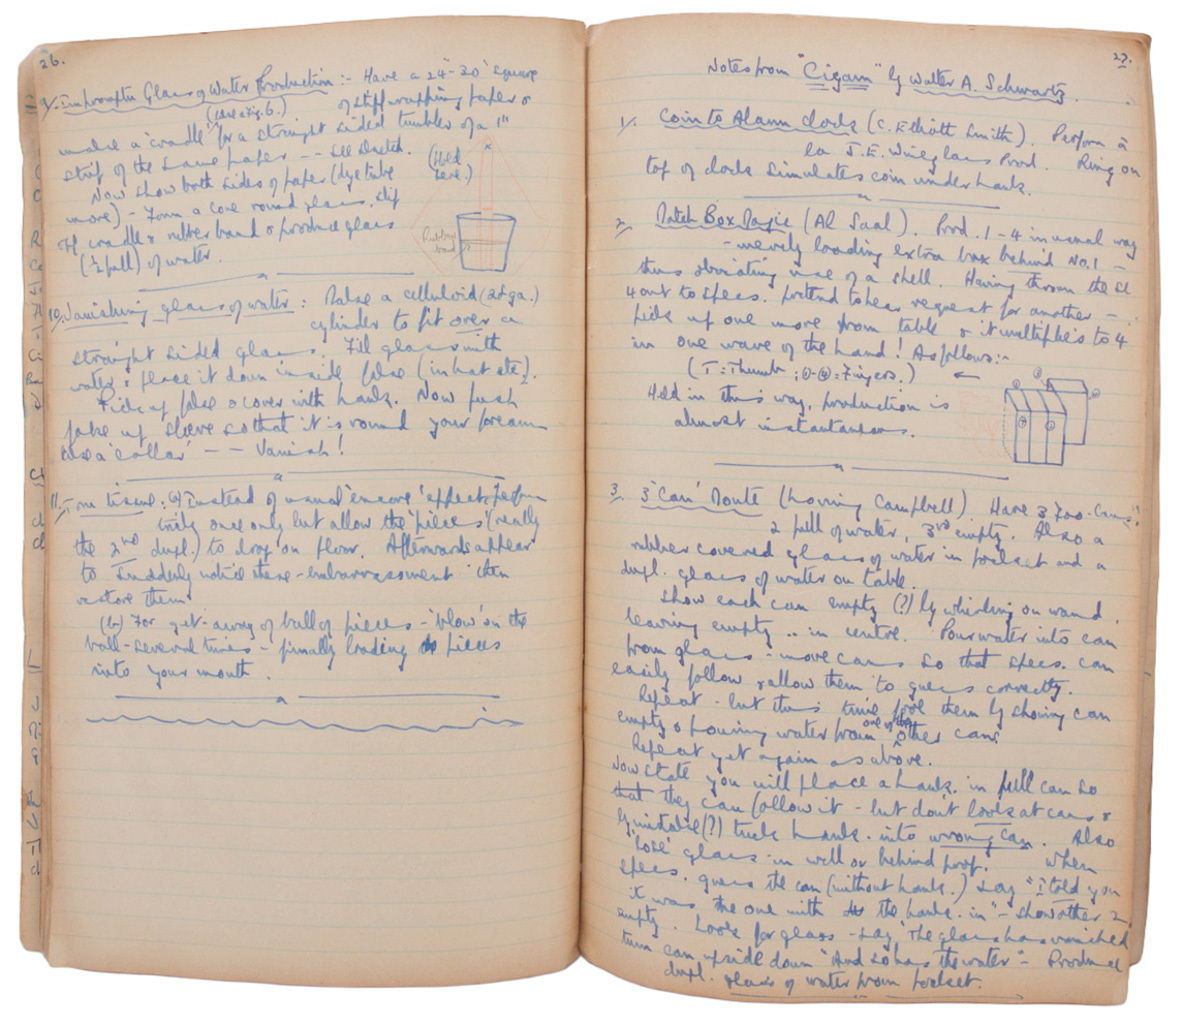 26.
9/. Impromptu Glass of Water Production :- Have a 24"-30" square
(also Fig. 6.) of stiff wrapping paper &
make a "cradle" for a straight sided tumbler of a 1"
strip of the same paper -- See sketch.
(Hold here.)
Now show both sides of paper (dye tube
move) - Form a cone round glass, slip
off cradle & rubber band & produce glass
(½ full) of water.
Rubber band
10/. Vanishing glass of water : Make a celluloid
cylinder to fit over a
straight sided glass. Fill glass with
water & place it down inside fake (in hat etc).
Pick up fake & cover with hank. Now push
fake up sleeve so that it is round your forearm
like a collar -- Vanish!
11/. Torn tissue : (a) Instead of usual 'encore' effect, perform
trick once only but allow the 'pieces' (really
the 2nd dupl.) to drop on floor. Afterwards appear
to suddenly notice these - embarrassment - then
restore them.
(b) For get-away of ball of pieces - 'blow' on the
ball - several times - finally loading pieces
into your mouth.
27.
Notes from "Cigam" by Walter A. Schwartz.
1/. Coin to Alarm Clock (C. Elliott Smith). Perform à
la J.E. Wineglass Prod. Ring on
top of clock simulates coin under hank.
2/. Match Box Magic (Al Saal). Prod. 1-4 in usual way
- merely loading extra box behind No.1 -
thus obviating use of a shell. Having thrown the
4 out to specs. pretend to hear request for another -
pick up one more from table & it multiplies to 4
in one wave of the hand! As follows:-
(T = Thumb ; ①-④ = Fingers.)
Held in this way, production is
almost instantaneous.
3/. 3 'Can' Route (Loring Campbell) Have 3 Foo-Cans,
2 full of water, 3rd empty. Also a
rubber covered glass of water in pocket and a
dupl. glass of water on table.
Show each can empty (?) by whirling on wand,
leaving empty .. in centre. Pour water into can
from glass - move cans so that specs. can
easily follow & allow them to guess correctly.
Repeat - but this time fool them by showing can
empty & pouring water from one of the other cans.
Repeat yet again as above.
Now state you will place a hank. in full can so
that they can follow it - but don't look at cans &
by mistake (?) tuck hank. into wrong can. Also
'lose' glass in well or behind prop. When
specs. guess the can (without hank.) say "I told you
it was the one with the hank. in" - show other 2
empty. Look for glass - say "The glass has vanished"
turn can upside down "And so has the water" - Produce
dupl. glass of water from pocket.